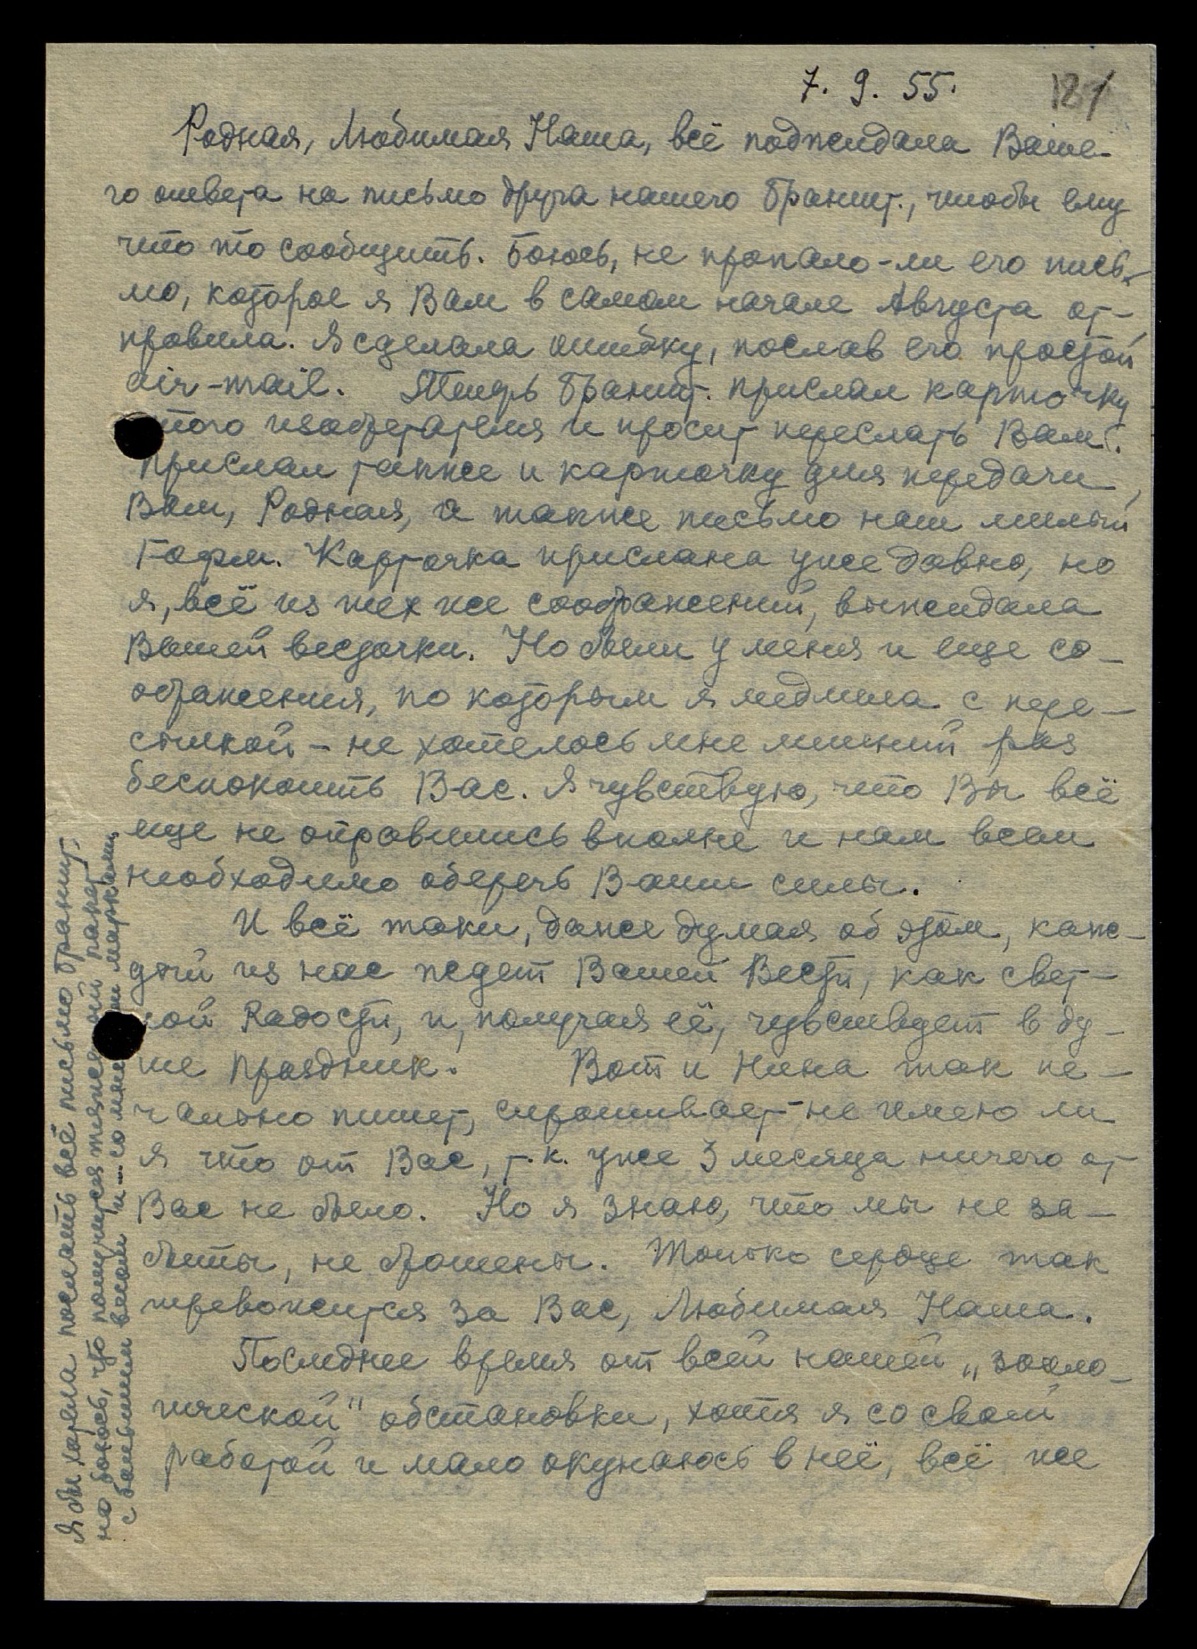 7. 9. 55.
187
Родная, Любимая Наша, всё поджидала Ваше-
го ответа на письмо друга нашего Бранит., чтобы ему
что то сообщить. Боюсь, не пропало-ли его пись-
мо, которое я Вам в самом начале Августа от-
правила. Я сделала ошибку, послав его простой
air-mail. Теперь Бранит. прислал карточку
этого изобретателя и просит переслать Вам.
Прислал также и карточку для передачи
Вам, Родная, а также письмо наш милый
Гофм. Карточка прислана уже давно, но
я, всё из тех же соображений, выжидала
Вашей весточки. Но были у меня и еще со-
ображения, по которым я медлила с пере-
сылкой – не хотелось мне лишний раз
беспокоить Вас. Я чувствую, что Вы всё
еще не оправились вполне и нам всем
необходимо оберечь Ваши силы.
И всё таки, даже думая об этом, каж-
дый из нас ждет Вашей Вести, как свет-
лой Радости, и, получая её, чувствует в ду-
ше праздник. Вот и Нина так пе-
чально пишет, спрашивает не имею ли
я что от Вас, т.к. уже 3 месяца ничего от
Вас не было. Но я знаю, что мы не за-
быты, не брошены. Только сердце так
тревожится за Вас, Любимая Наша.
Последнее время от всей нашей „зооло-
гической" обстановки, хотя я со своей
работой и мало окунаюсь в неё, всё же
Я бы хотела послать всё письмо Бранит.
но боюсь, что получится тяжелый пакет
с большим весом и со многими марками